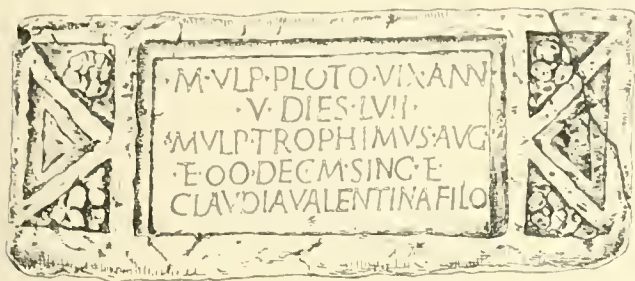 ·M·VLP·PLOTO·VIX·ANN
·V·DIES·LVII·
·MVLP·TROPHIMVS·AVG
·E·OO·DEC·M·SING·E
CLAVDIA VALENTINA FILO